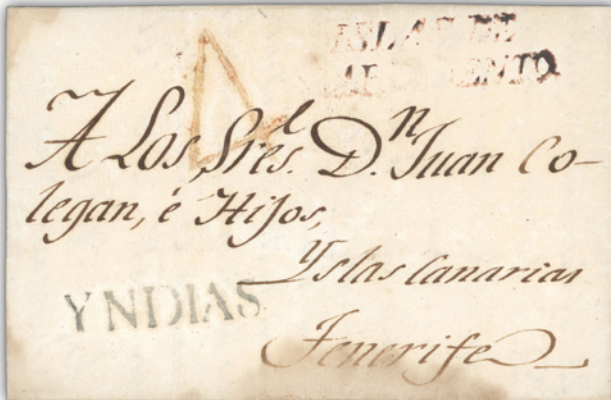 ISLAS DE
BARLOVENTO
A Los Sres. D.n Juan Co-
legan, é Hijos,
Yslas Canarias
YNDIAS
Tenerife